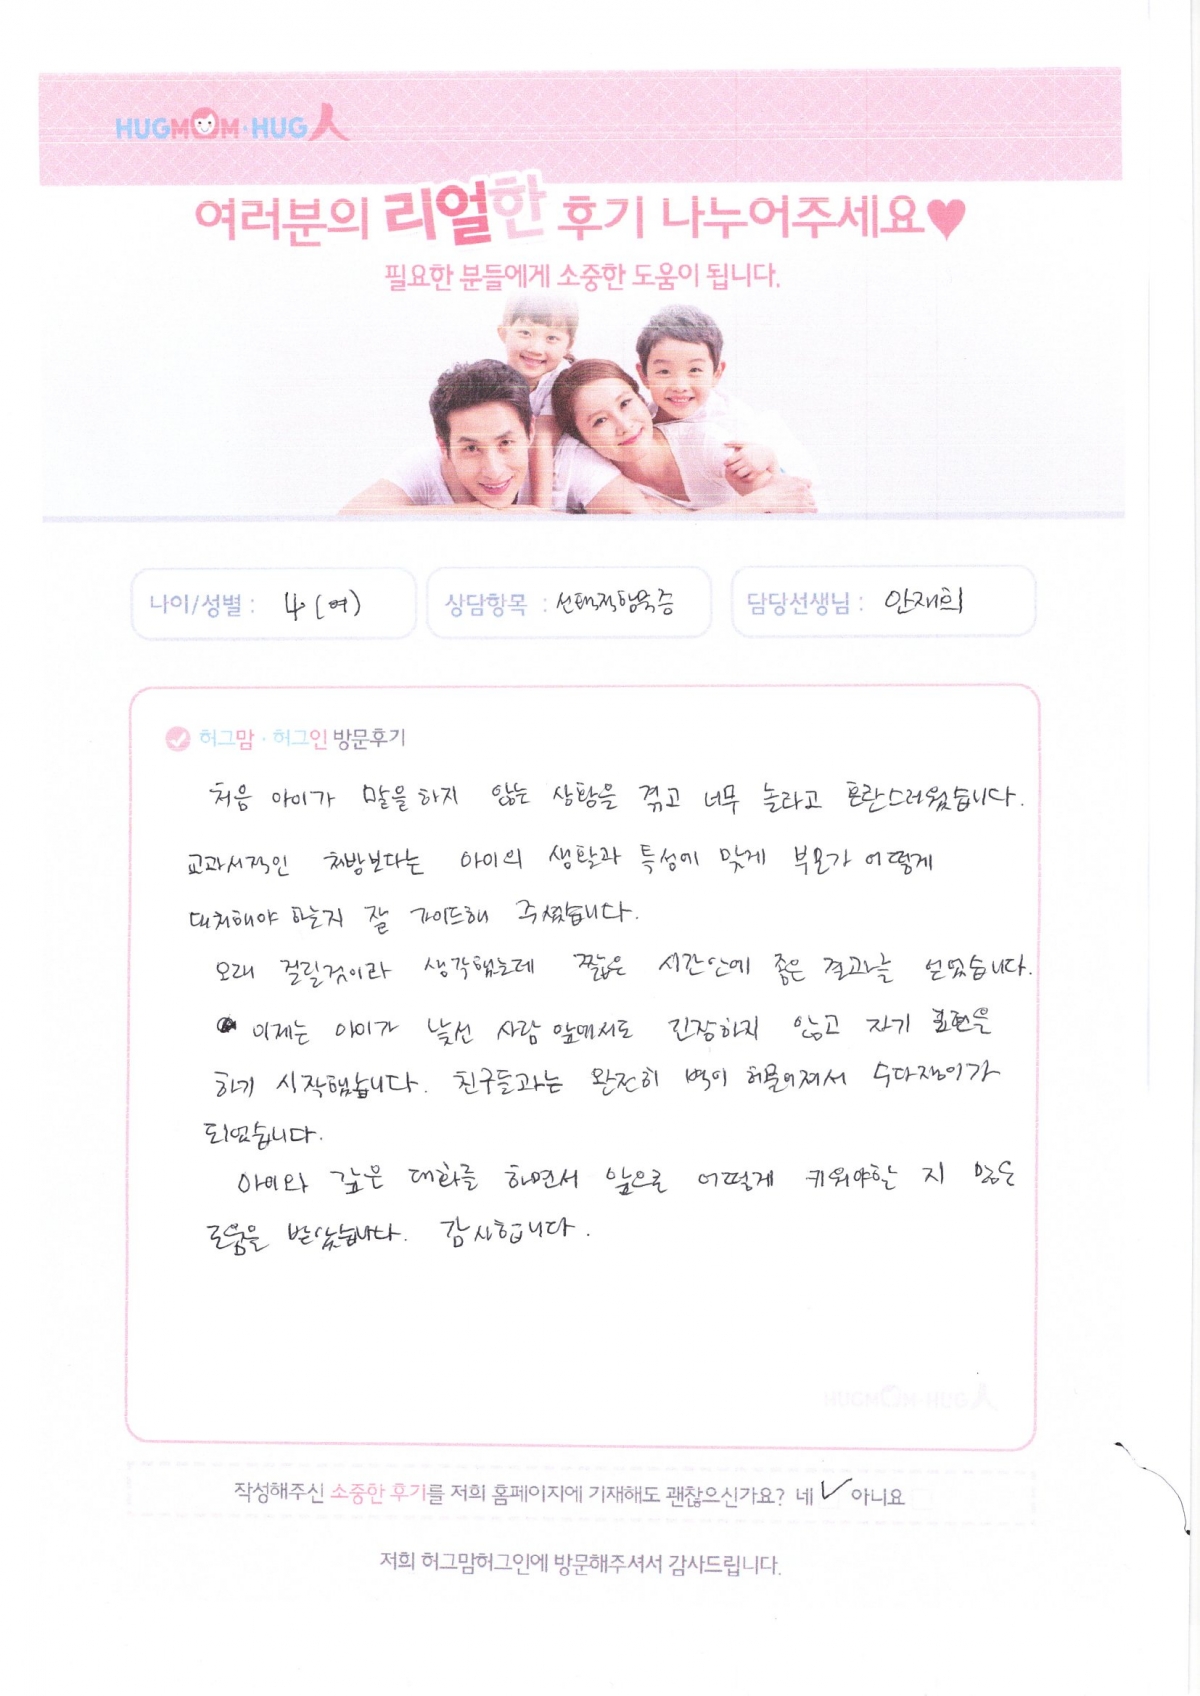 HUGMOM·HUG人
여러분의 리얼한 후기 나누어주세요♥
필요한 분들에게 소중한 도움이 됩니다.
나이/성별 : 4 (여) 상담항목 : 선택적함묵증 담당선생님 : 안재희
허그맘·허그인 방문후기
처음 아이가 말을 하지 않는 상황을 겪고 너무 놀라고 혼란스러웠습니다.
교과서적인 처방보다는 아이의 생활과 특성에 맞게 부모가 어떻게
대처해야 하는지 잘 가이드해 주셨습니다.
오래 걸릴것이라 생각했는데 짧은 시간안에 좋은 결과를 얻었습니다.
이제는 아이가 낯선 사람 앞에서도 긴장하지 않고 자기 표현을
하기 시작했습니다. 친구들과는 완전히 벽이 허물어져서 수다쟁이가
되었습니다.
아이와 깊은 대화를 하면서 앞으로 어떻게 키워야할 지 많은
도움을 받았습니다. 감사합니다.
HUGMOM·HUG人
작성해주신 소중한 후기를 저희 홈페이지에 기재해도 괜찮으신가요? 네 ✓ 아니요
저희 허그맘허그인에 방문해주셔서 감사드립니다.